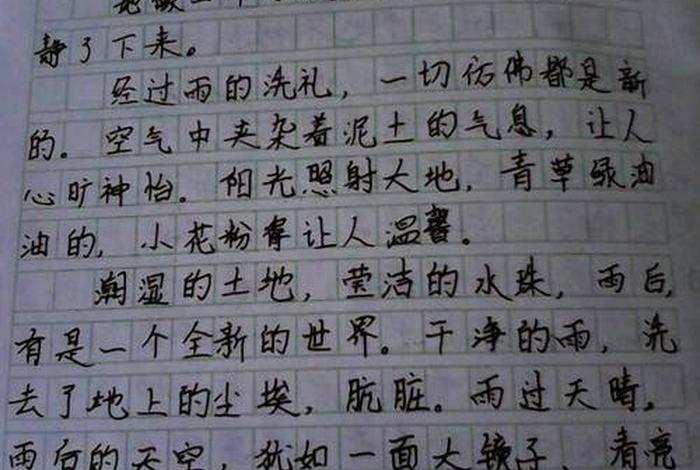 静了下来。
经过雨的洗礼，一切仿佛都是新
的。空气中夹杂着泥土的气息，让人
心旷神怡。阳光照射大地，青草绿油
油的，小花粉让人温馨。
潮湿的土地，莹洁的水珠，雨后，
有是一个全新的世界。干净的雨，洗
去了地上的尘埃，肮脏。雨过天晴，
雨后的天空，犹如一面大镜子，亮